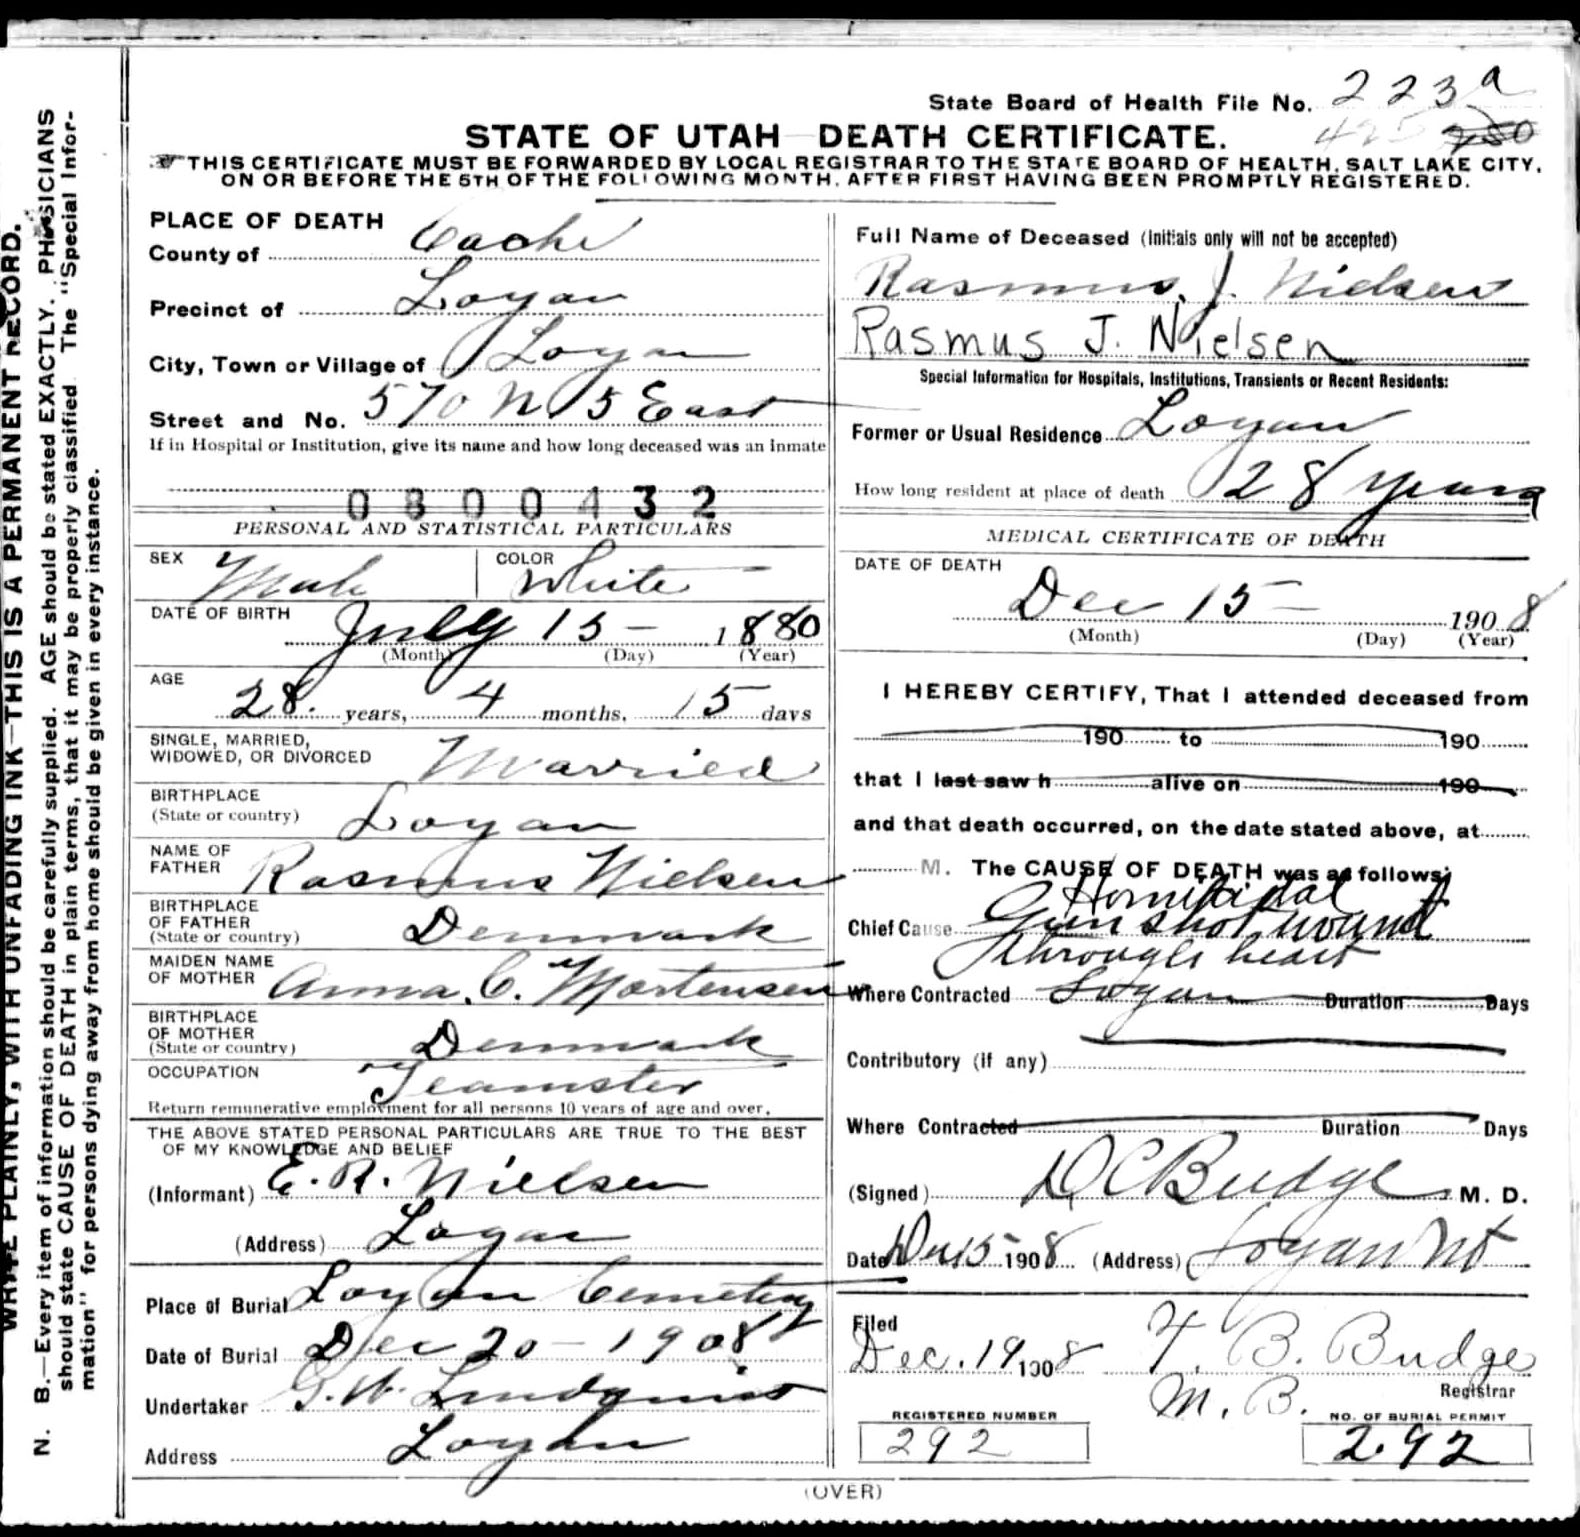 State Board of Health File No. 223a
425 280
STATE OF UTAH DEATH CERTIFICATE.
THIS CERTIFICATE MUST BE FORWARDED BY LOCAL REGISTRAR TO THE STATE BOARD OF HEALTH, SALT LAKE CITY,
ON OR BEFORE THE 5TH OF THE FOLLOWING MONTH, AFTER FIRST HAVING BEEN PROMPTLY REGISTERED.
WRITE PLAINLY, WITH UNFADING INK—THIS IS A PERMANENT RECORD.
N. B.—Every item of information should be carefully supplied. AGE should be stated EXACTLY. PHYSICIANS
should state CAUSE OF DEATH in plain terms, that it may be properly classified. The "Special Infor-
mation" for persons dying away from home should be given in every instance.
PLACE OF DEATH
County of Cache
Precinct of Logan
City, Town or Village of Logan
Street and No. 570 N 5 East
If in Hospital or Institution, give its name and how long deceased was an inmate
0800432
PERSONAL AND STATISTICAL PARTICULARS
SEX Male COLOR White
DATE OF BIRTH
July 15 — 1880
(Month) (Day) (Year)
AGE
28 years, 4 months, 15 days
SINGLE, MARRIED,
WIDOWED, OR DIVORCED Married
BIRTHPLACE
(State or country) Logan
NAME OF
FATHER Rasmus Nielsen
BIRTHPLACE
OF FATHER
(State or country) Denmark
MAIDEN NAME
OF MOTHER Anna C. Mortensen
BIRTHPLACE
OF MOTHER
(State or country) Denmark
OCCUPATION Teamster
Return remunerative employment for all persons 10 years of age and over.
THE ABOVE STATED PERSONAL PARTICULARS ARE TRUE TO THE BEST
OF MY KNOWLEDGE AND BELIEF
(Informant) E. R. Nielsen
(Address) Logan
Place of Burial Logan Cemetery
Date of Burial Dec 20 — 1908
Undertaker G. W. Lindquist
Address Logan
Full Name of Deceased (Initials only will not be accepted)
Rasmus J. Nielsen
Rasmus J. Nielsen
Special Information for Hospitals, Institutions, Transients or Recent Residents:
Former or Usual Residence Logan
How long resident at place of death 28 years
MEDICAL CERTIFICATE OF DEATH
DATE OF DEATH
Dec 15 — 1908
(Month) (Day) (Year)
I HEREBY CERTIFY, That I attended deceased from
190 to 190
that I last saw h alive on 190
and that death occurred, on the date stated above, at
M. The CAUSE OF DEATH was as follows:
Homicidal
Chief Cause Gun shot wound
through heart
Where Contracted Logan Duration Days
Contributory (if any)
Where Contracted Duration Days
(Signed) D C Budge M. D.
Date Dec 15 1908 (Address) Logan Ut
Filed
Dec. 19 1908 F. B. Budge
M. B. Registrar
REGISTERED NUMBER
292
NO. OF BURIAL PERMIT
292
(OVER)